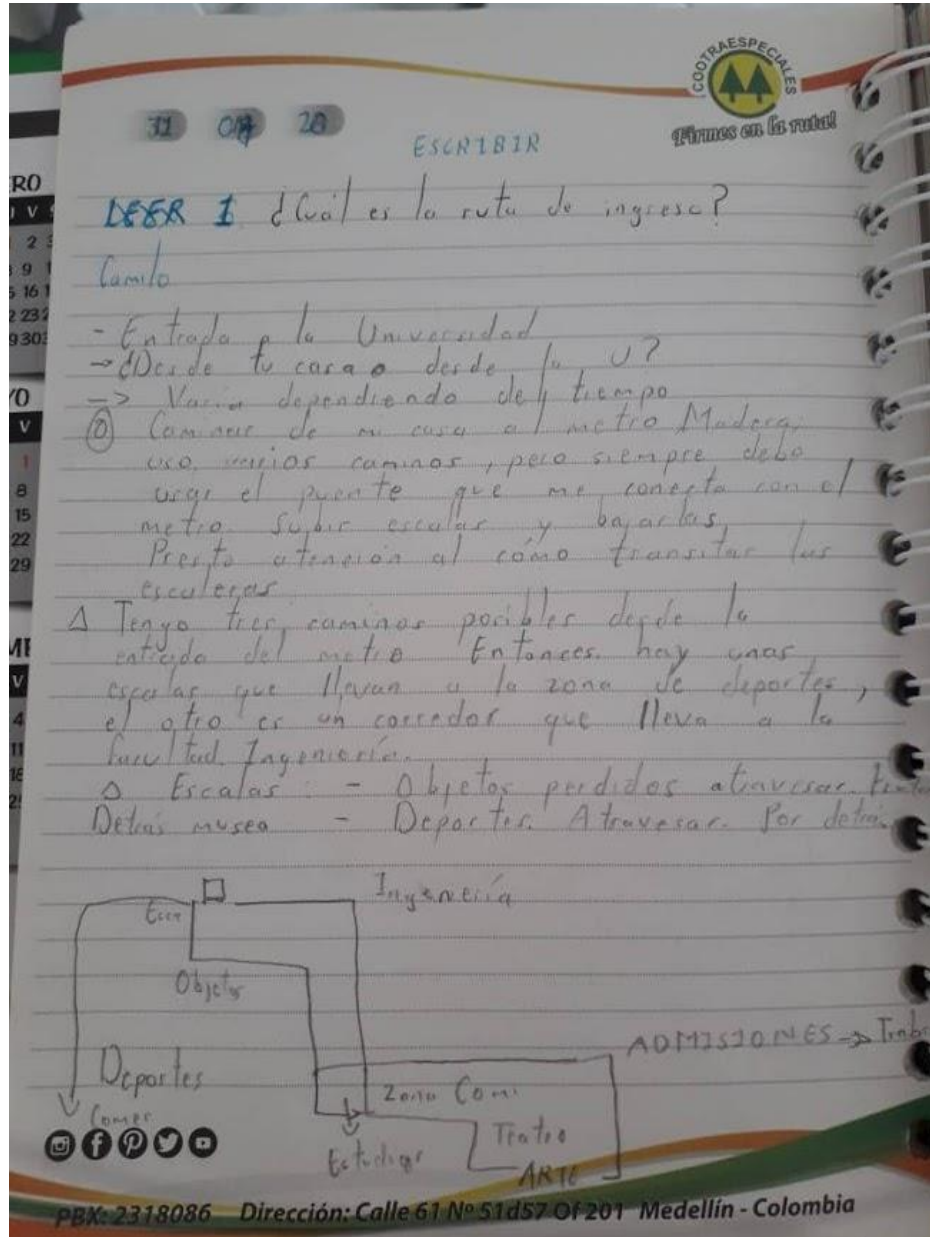 COOTRAESPECIALES
Firmes en la ruta!
31 20
ESCRIBIR
LEER 1 ¿Cuál es la ruta de ingreso?
Camilo
- Entrada a la Universidad
→ ¿Desde tu casa o desde la U?
-> Varia dependiendo del tiempo
Caminar de mi casa al metro Madera,
uso varios caminos, pero siempre debo
usar el puente que me conecta con el
metro. Subir escalas y bajarlas.
Presto atención al cómo transitar las
escaleras
Δ Tengo tres caminos posibles desde la
entrada del metro Entonces hay unas
escalas que llevan a la zona de deportes,
el otro es un corredor que lleva a la
facultad Ingeniería.
Δ Escalas: - Objetos perdidos atravesar
Detrás museo - Deportes. Atravesar. Por detrás
Ingeniería
Objetos
ADMISIONES ->
Deportes
Zona Comi
Comer
Teatro
Estudiar
ARTE
PBX: 2318086 Dirección: Calle 61 Nº 51d57 Of 201 Medellín - Colombia
RO
V
2 3
9 1
16 1
2 23 2
9 30 3
YO
V
1
8
15
22
29
V
4
11